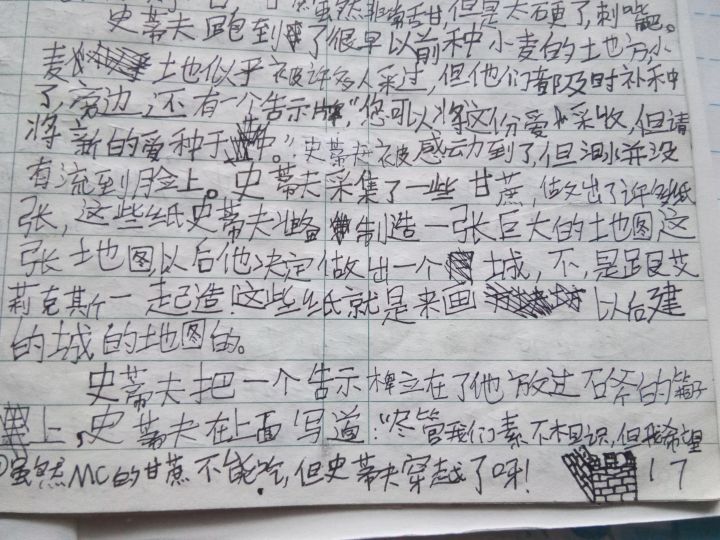 虽然非常甘甜,但是太硬了,刺嘴。
史蒂夫跑到了很早以前种小麦的土地方,小
麦土地似乎被许多人采过,但他们都及时补种
了,旁边,还有一个告示牌“您可以将这份爱采收,但请
将新的爱种于其中。”史蒂夫被感动到了,但泪水并没
有流到脸上。史蒂夫采集了一些甘蔗,做出了许多纸
张,这些纸史蒂夫准备制造一张巨大的地图,这
张地图以后他决定做出一个城,不,是跟艾
莉克斯一起造!这些纸就是来画以后建
的城的地图的。
史蒂夫把一个告示牌立在了他放过石斧的箱子
上,史蒂夫在上面写道:“尽管我们素不相识,但我希望
①虽然MC的甘蔗不能吃,但史蒂夫穿越了呀!
17